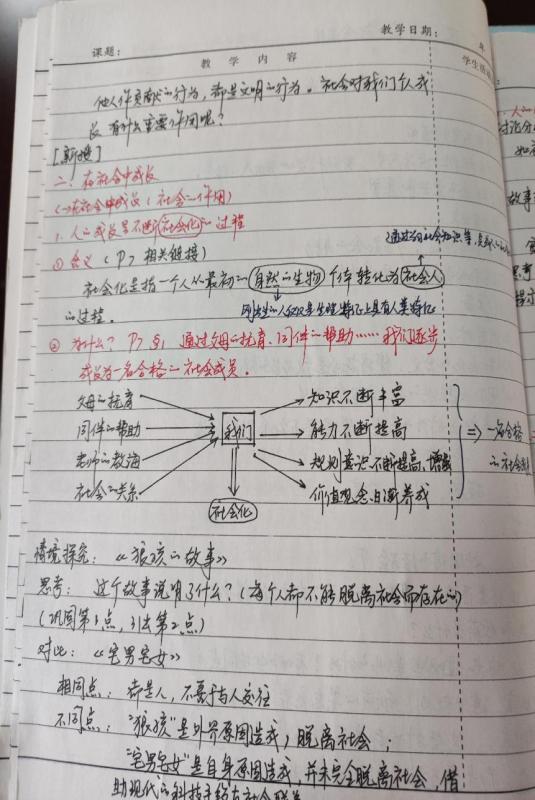 教学日期： 年
课题：
教 学 内 容
学生活
他人作贡献的行为，都是文明的行为。社会对我们个人成
长有什么重要作用呢？
[新授]
二、在社会中成长
(一)在社会中成长（社会的作用）
1、人的成长是不断社会化的过程
① 含义（P7 相关链接）
通过学习社会知识等，
社会化是指一个人从最初的自然的生物个体转化为社会人
刚出生的人仅仅是生理特征上具有人类特征
的过程。
② 为什么？P7 通过父母的抚育、同伴的帮助……我们逐步
成长为一名合格的社会成员。
父母的抚育
同伴的帮助
老师的教诲
社会的关系
我们
社会化
知识不断丰富
能力不断提高
规则意识不断提高、增强
价值观念日渐养成
⇒ 一名合格
的社会
情境探究：《狼孩的故事》
思考：这个故事说明了什么？（每个人都不能脱离社会而存在的）
（巩固第1点，引出第2点）
对比：《宅男宅女》
相同点：都是人，不善于与人交往
不同点："狼孩"是外界原因造成，脱离社会；
"宅男宅女"是自身原因造成，并未完全脱离社会，借
助现代的科技手段与社会联系